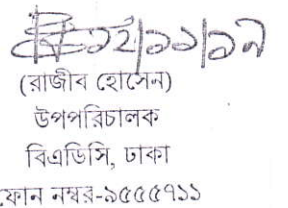 ১২/১১/১৯
(রাজীব হোসেন)
উপপরিচালক
বিএডিসি, ঢাকা
ফোন নম্বর-৯৫৫৫৭১১